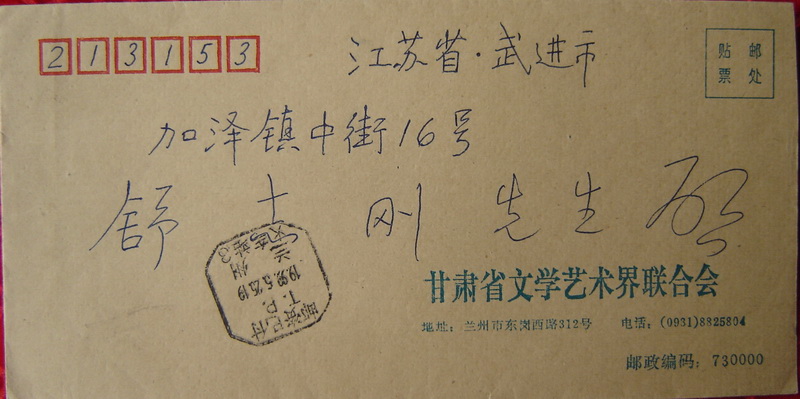 213153
江苏省·武进市
贴邮
票处
加泽镇中街16号
舒士刚先生启
兰州
1998.5.25.19
T.P.
邮资已付
甘肃省文学艺术界联合会
地址：兰州市东岗西路312号 电话：(0931)8825804
邮政编码：730000